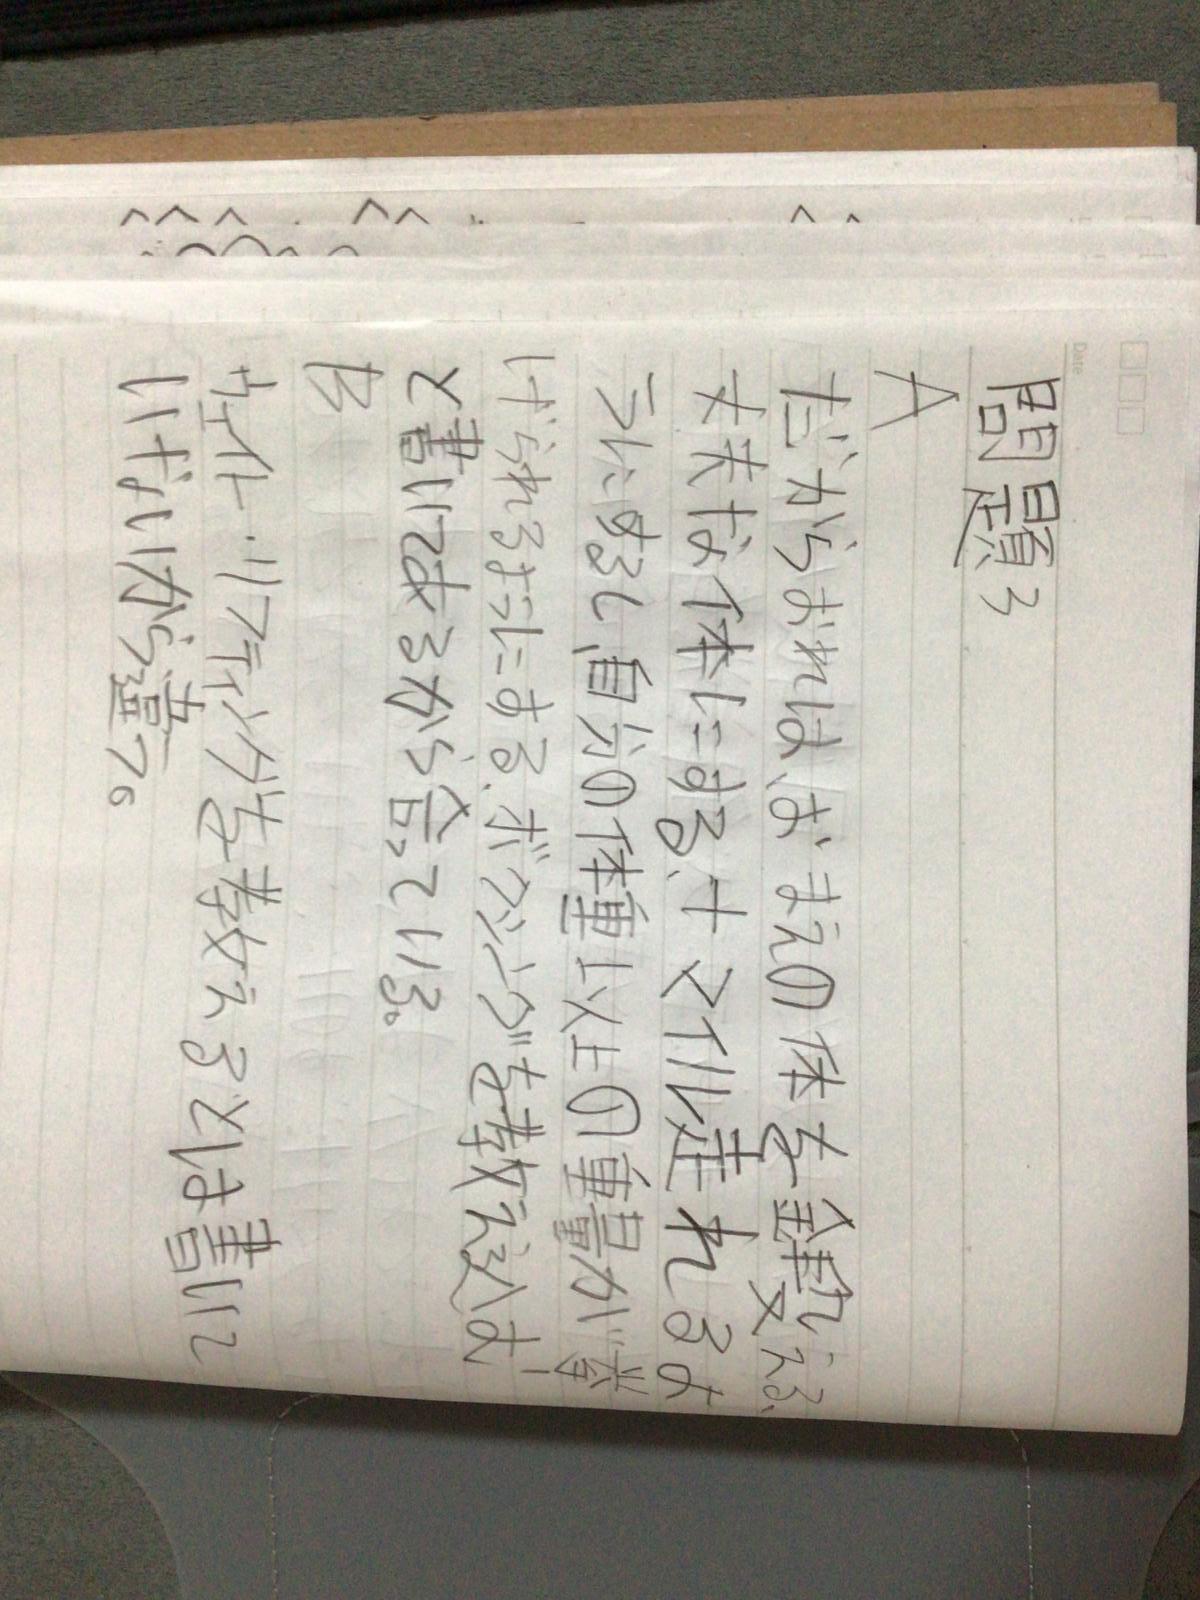 Date
問題3
A
だからおれは、おまえの体を鍛える、
丈夫な体にする、十マイル走れるよ
うにするし、自分の体重以上の重量が挙
げられるようにする、ボクシングを教え込む
と書いてはるから合っている。
B
ウェイト・リフティングを教えるとは書いて
いけないから違う。